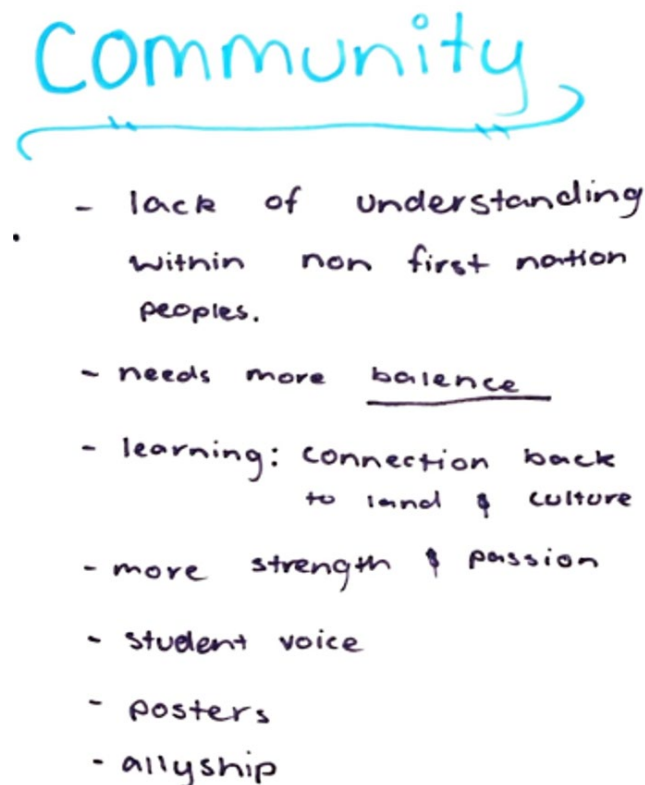 Community
- lack of understanding
within non first nation
peoples.
- needs more balence
- learning: connection back
to land & culture
- more strength & passion
- student voice
- posters
- allyship